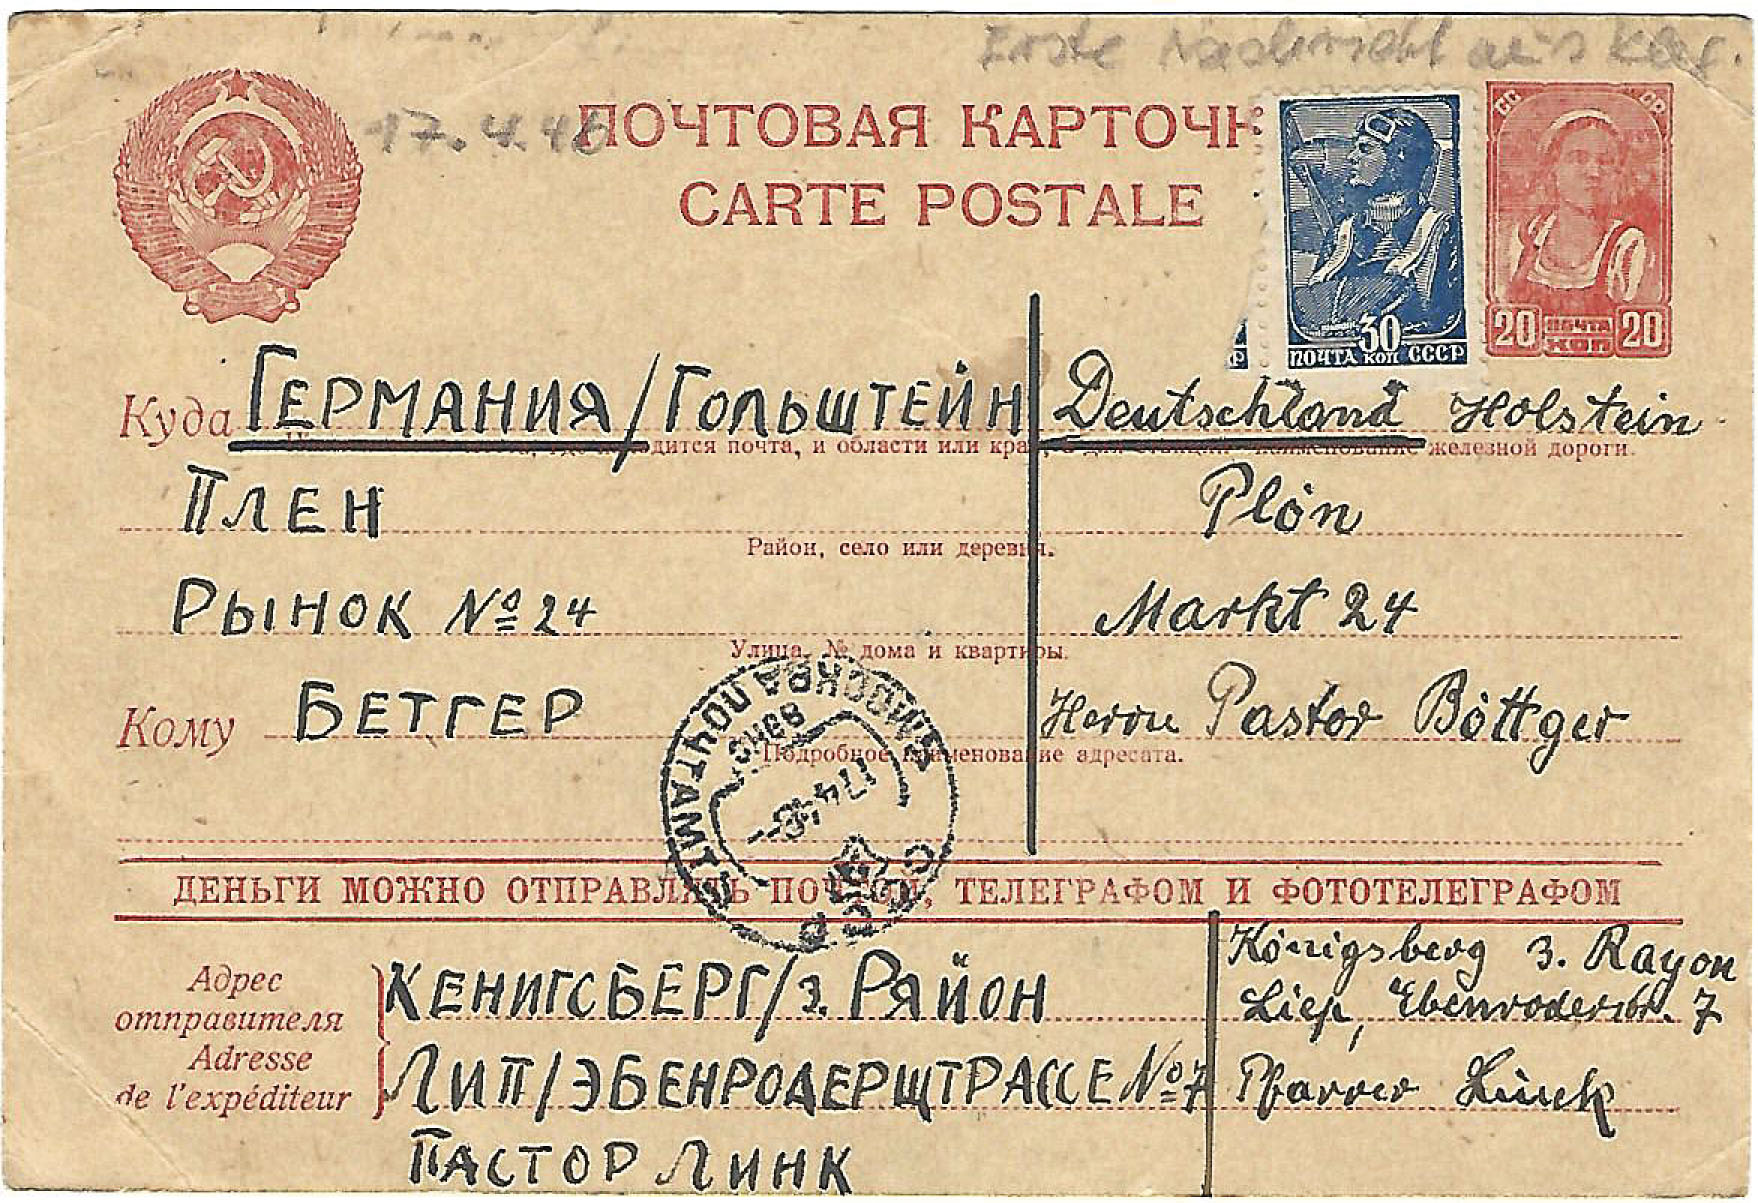 Erste Nachricht aus Kbg.
17.4.46
ПОЧТОВАЯ КАРТОЧК
CARTE POSTALE
СС СР
30
ПОЧТА КОП СССР
20 ПОЧТА КОП 20
Куда ГЕРМАНИЯ/ГОЛЬШТЕЙН Deutschland Holstein
дится почта, и области или кра железной дороги.
ПЛЕН Plön
Район, село или деревня.
РЫНОК № 24 Markt 24
Улица, № дома и квартиры.
Кому БЕТГЕР Herrn Pastor Böttger
Подробное наименование адресата.
МОСКВА ПОЧТАМТ
17 4 46
СССР
ДЕНЬГИ МОЖНО ОТПРАВЛЯТЬ ПОЧТОЙ, ТЕЛЕГРАФОМ И ФОТОТЕЛЕГРАФОМ
Адрес отправителя
Adresse de l'expéditeur
КЕНИГСБЕРГ/3. РЯЙОН
ЛИП/ЭБЕНРОДЕРЩТРАССЕ №7
ПАСТОР ЛИНК
Königsberg 3. Rayon
Liep, Ebenroderstr. 7
Pfarrer Linck